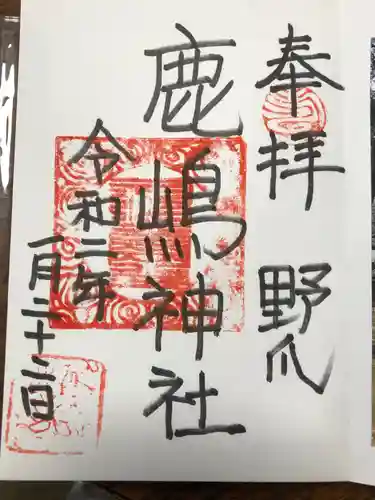 奉拝 野爪
鹿嶋神社
令和二年
一月二十二日